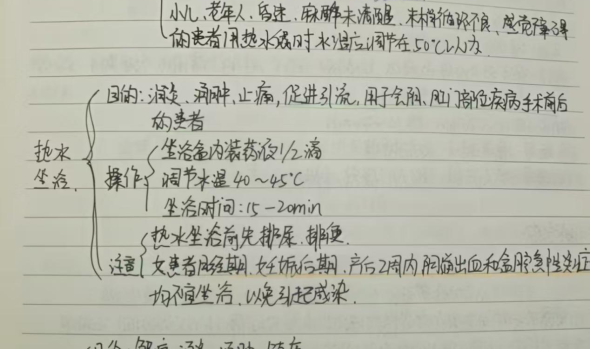 小儿、老年人、昏迷、麻醉未清醒、末梢循环不良、感觉障碍
的患者用热水袋时水温应调节在50℃以内
热水坐浴
目的:消炎、消肿、止痛,促进引流,用于会阴、肛门部位疾病手术前后
的患者
操作
坐浴盆内装药液1/2满
调节水温40~45℃
坐浴时间:15-20min
注意
热水坐浴前先排尿、排便.
女患者月经期、妊娠后期、产后2周内阴道出血和盆腔急性炎症
均不宜坐浴,以免引起感染.